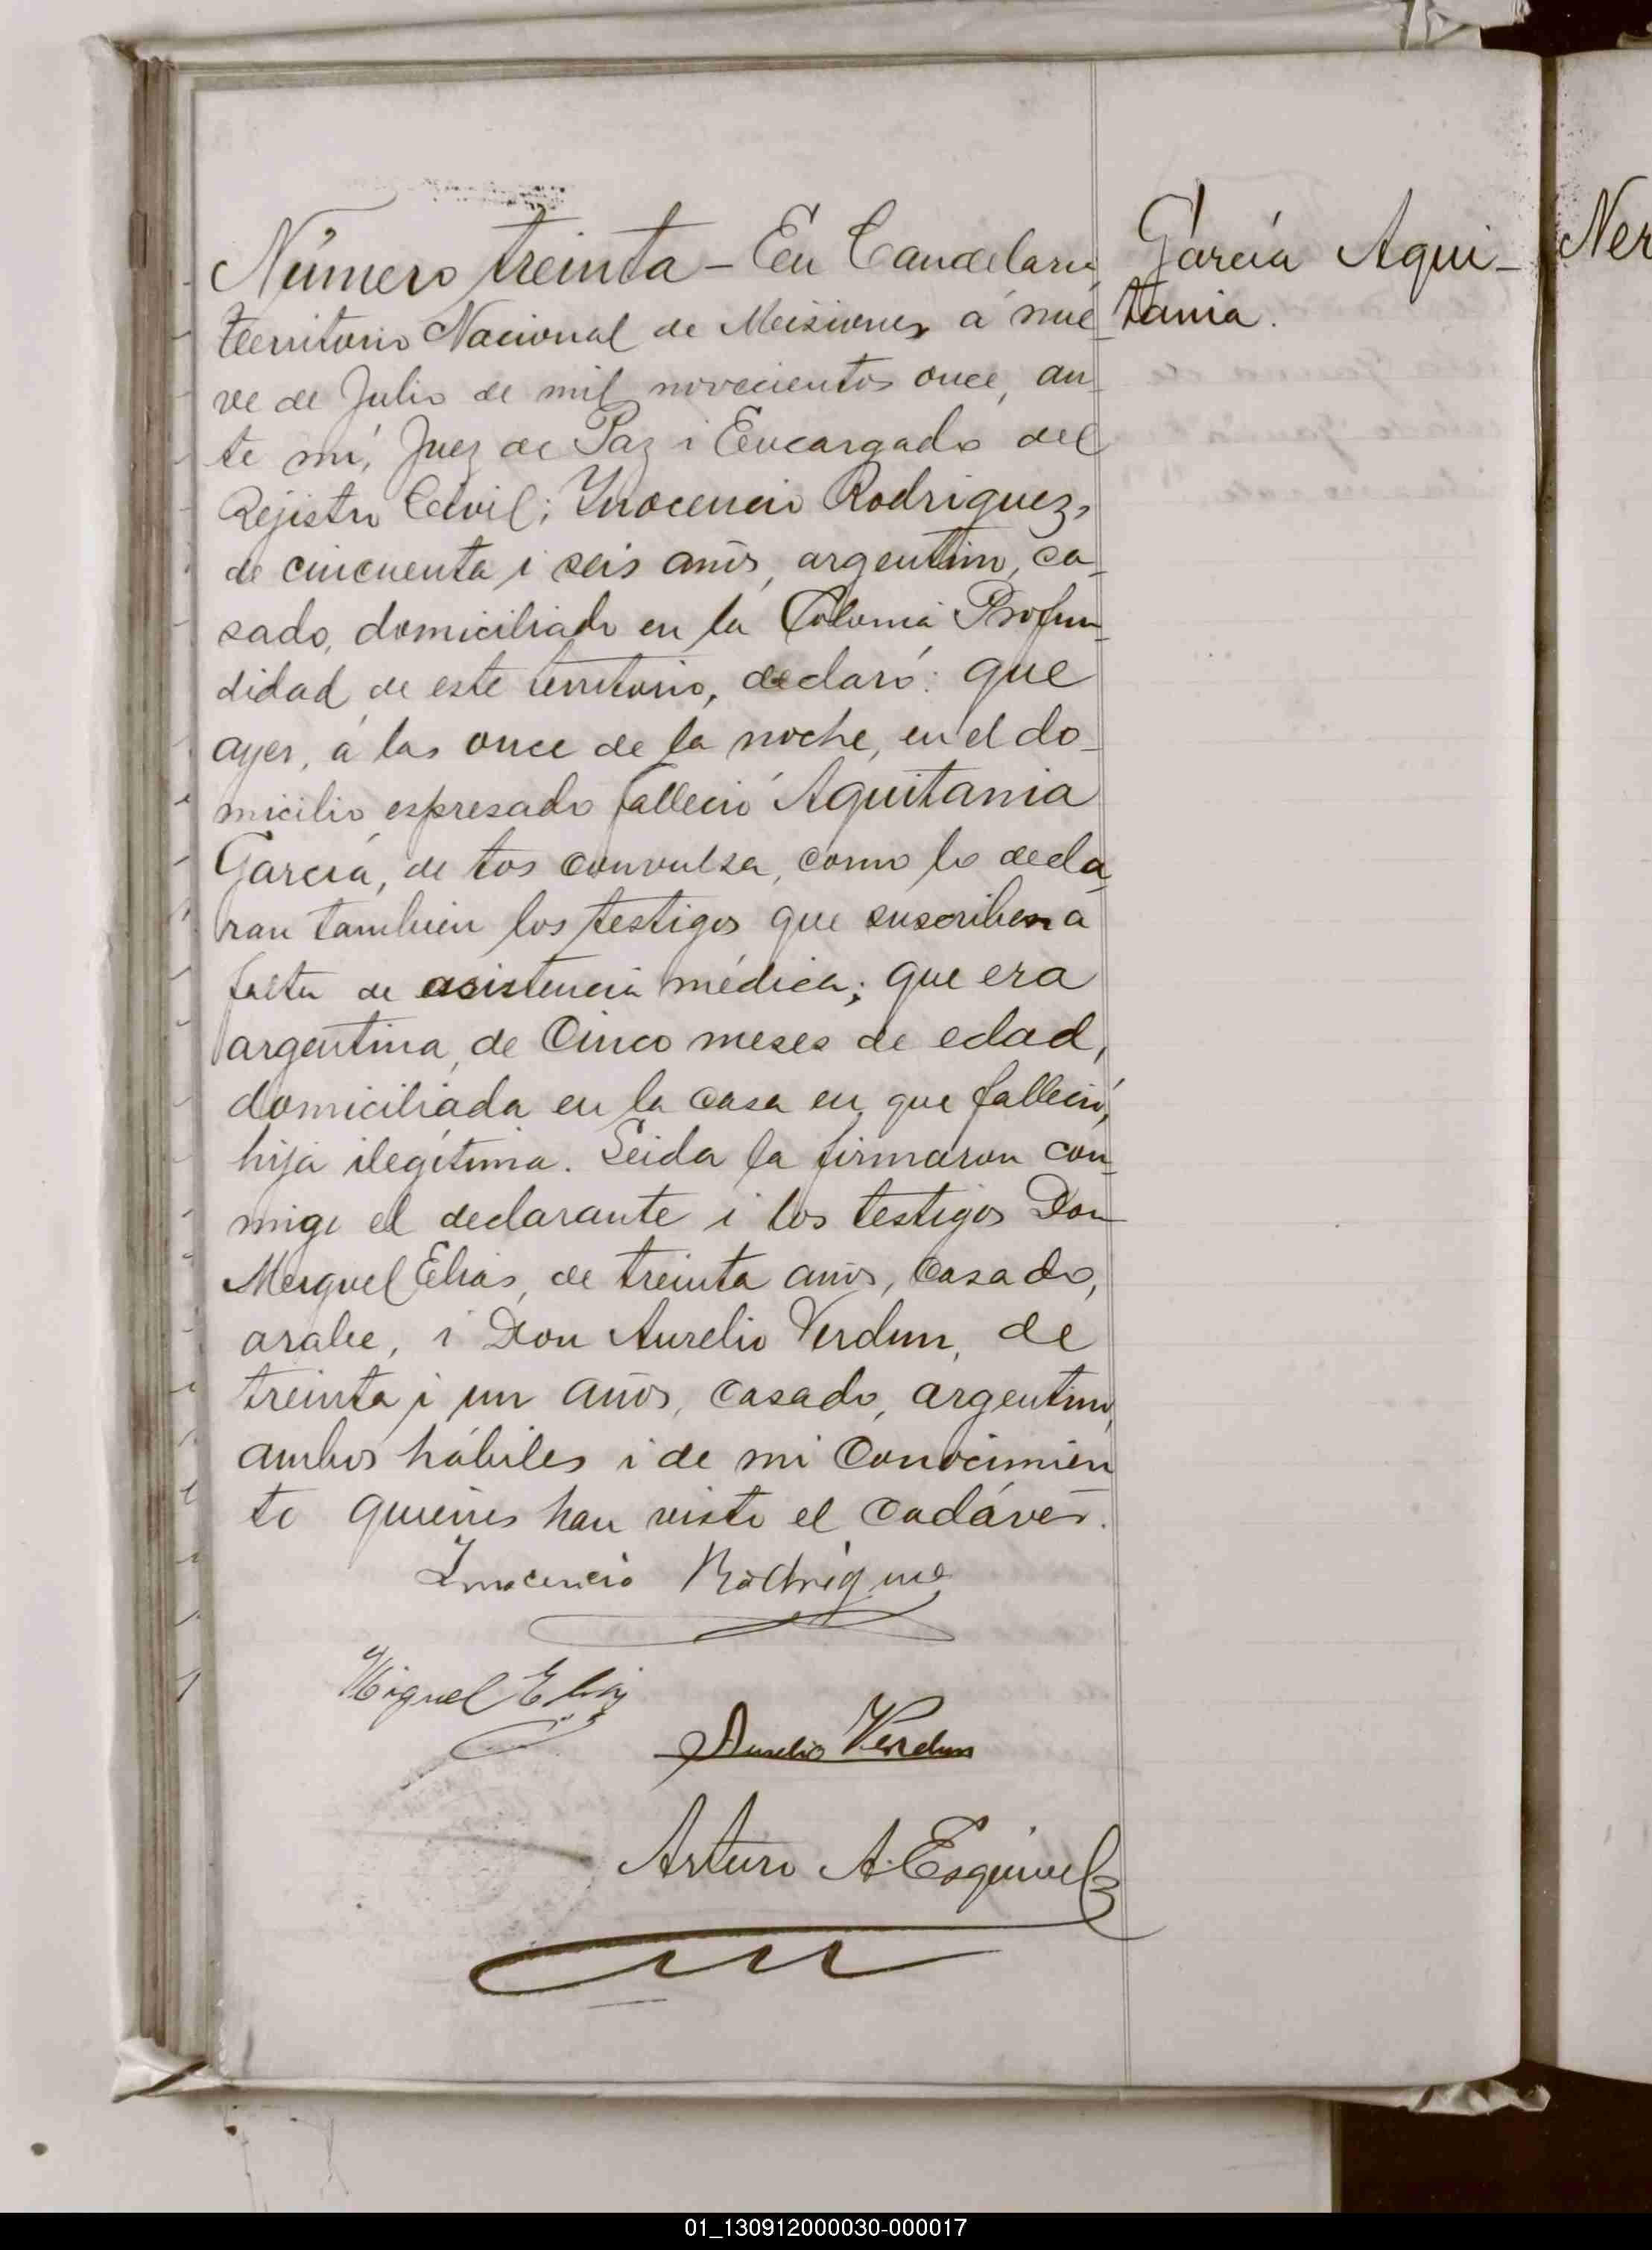 Número treinta - En Candelaria
territorio Nacional de Misiones á nue-
ve de Julio de mil novecientos once, an-
te mí, Juez de Paz i Encargado del
Rejistro Civil; Inocencio Rodriguez,
de cincuenta i seis años, argentino, ca-
sado, domiciliado en la Colonia Profun-
didad de este territorio, declaró: que
ayer, á las once de la noche, en el do-
micilio espresado falleció Aquitania
García, de tos convulsa, como lo decla-
ran tambien los testigos que suscriben a
falta de asistencia médica; que era
argentina, de cinco meses de edad,
domiciliada en la casa en que falleció,
hija ilegítima. Leida la firmaron con-
migo el declarante i los testigos Don
Miguel Elias, de treinta años, casado,
arabe, i Don Aurelio Verdun, de
treinta i un años, casado, argentino,
ambos hábiles i de mi conocimien
to quienes han visto el cadáver.
García Aqui-
tania.
Ner
Inocencio Rodrigue
Miguel Elias
Aurelio Verdun
Arturo A. Esquivel
01_130912000030-000017